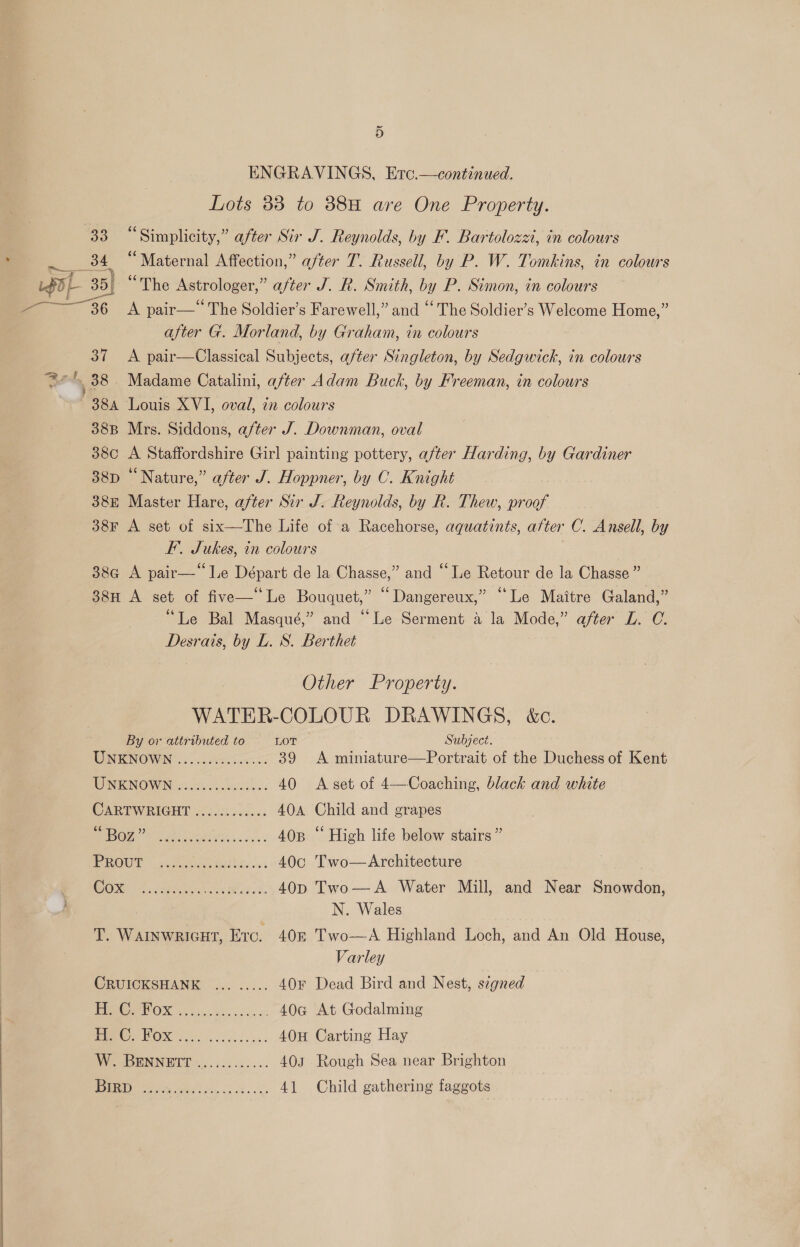 5
ENGRAVINGS, ETC.—continued.
Lots 33 to 38H are One Property.
33 “Simplicity,” after Sir J. Reynolds, by F. Bartolozzi, in colours
34 “Maternal Affection,” after T. Russell, by P. W. Tomkins, in colours
35 “The Astrologer,” after J. R. Smith, by P. Simon, in colours
36 A pair—“The Soldier’s Farewell,” and “The Soldier’s Welcome Home,”
after G. Morland, by Graham, in colours
37 A pair—Classical Subjects, after Singleton, by Sedgwick, in colours
38 Madame Catalini, after Adam Buck, by Freeman, in colours
38A Louis XVI, oval, in colours
38B Mrs. Siddons, after J. Downman, oval
38C A Staffordshire Girl painting pottery, after Harding, by Gardiner
38D “Nature,” after J. Hoppner, by C. Knight
38E Master Hare, after Sir J. Reynolds, by R. Thew, proof
38F A set of six—The Life of a Racehorse, aquatints, after C. Ansell, by
F. Jukes, in colours
38G A pair—“Le Départ de la Chasse,” and “Le Retour de la Chasse”
38H A set of five—“Le Bouquet,” “Dangereux,” “Le Maitre Galand,”
“Le Bal Masqué,” and “Le Serment à la Mode,” after L. C.
Desrais, by L. S. Berthet
Other Property.
WATER-COLOUR DRAWINGS, &c.
By or attributed to LOT Subject.
UNKNOWN ............... 39 A miniature—Portrait of the Duchess of Kent
UNKNOWN ............... 40 A set of 4—Coaching, black and white
CARTWRIGHT ............ 40A Child and grapes
“BOZ” .................. 40B “High life below stairs”
PROUT .................. 40C Two—Architecture
COX ..................... 40D Two—A Water Mill, and Near Snowdon,
N. Wales
T. WAINWRIGHT, ETC. 40E Two—A Highland Loch, and An Old House,
Varley
CRUICKSHANK ... ..... 40F Dead Bird and Nest, signed
H. C. FOX ............... 40G At Godalming
H. C. FOX ............... 40H Carting Hay
W. BENNETT ............ 40J Rough Sea near Brighton
BIRD ..................... 41 Child gathering faggots